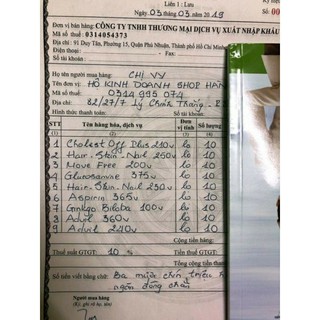 Liên 1 : Lưu
Ngày 03 tháng 03 năm 2019
Đơn vị bán hàng: CÔNG TY TNHH THƯƠNG MẠI DỊCH VỤ XUẤT NHẬP KHẨU
Mã số thuế: 0314054373
Địa chỉ: 91 Duy Tân, Phường 15, Quận Phú Nhuận, Thành phố Hồ Chí Minh
Điện thoại:
Số tài khoản:
Họ tên người mua hàng: CHỊ VY
Tên đơn vị: HỘ KINH DOANH SHOP HÀN
Mã số thuế: 0314995074
Địa chỉ: 82/27/7 Lý Chính Thắng
Số tài khoản
Hình thức thanh toán:
STT Tên hàng hóa, dịch vụ Đơn vị tính Số lượng
(1) (2) (3) (4)
1 Cholest Off Plus 210v lo 10
2 Hair-Skin-Nail 250v lo 10
3 Move Free 200v lo 10
4 Glucosamine 375v lo 10
5 Hair-Skin-Nail 230v lo 10
6 Aspirin 365v lo 10
7 Ginkgo Biloba 100v lo 10
8 Advil 360v lo 10
9 Advil 240v lo 10
Cộng tiền hàng:
Thuế suất GTGT: 10 % Tiền thuế GTGT:
Tổng cộng tiền thanh
Số tiền viết bằng chữ: Ba mươi chín triệu
ngàn đồng chẵn
Người mua hàng
(Ký, ghi rõ họ, tên)